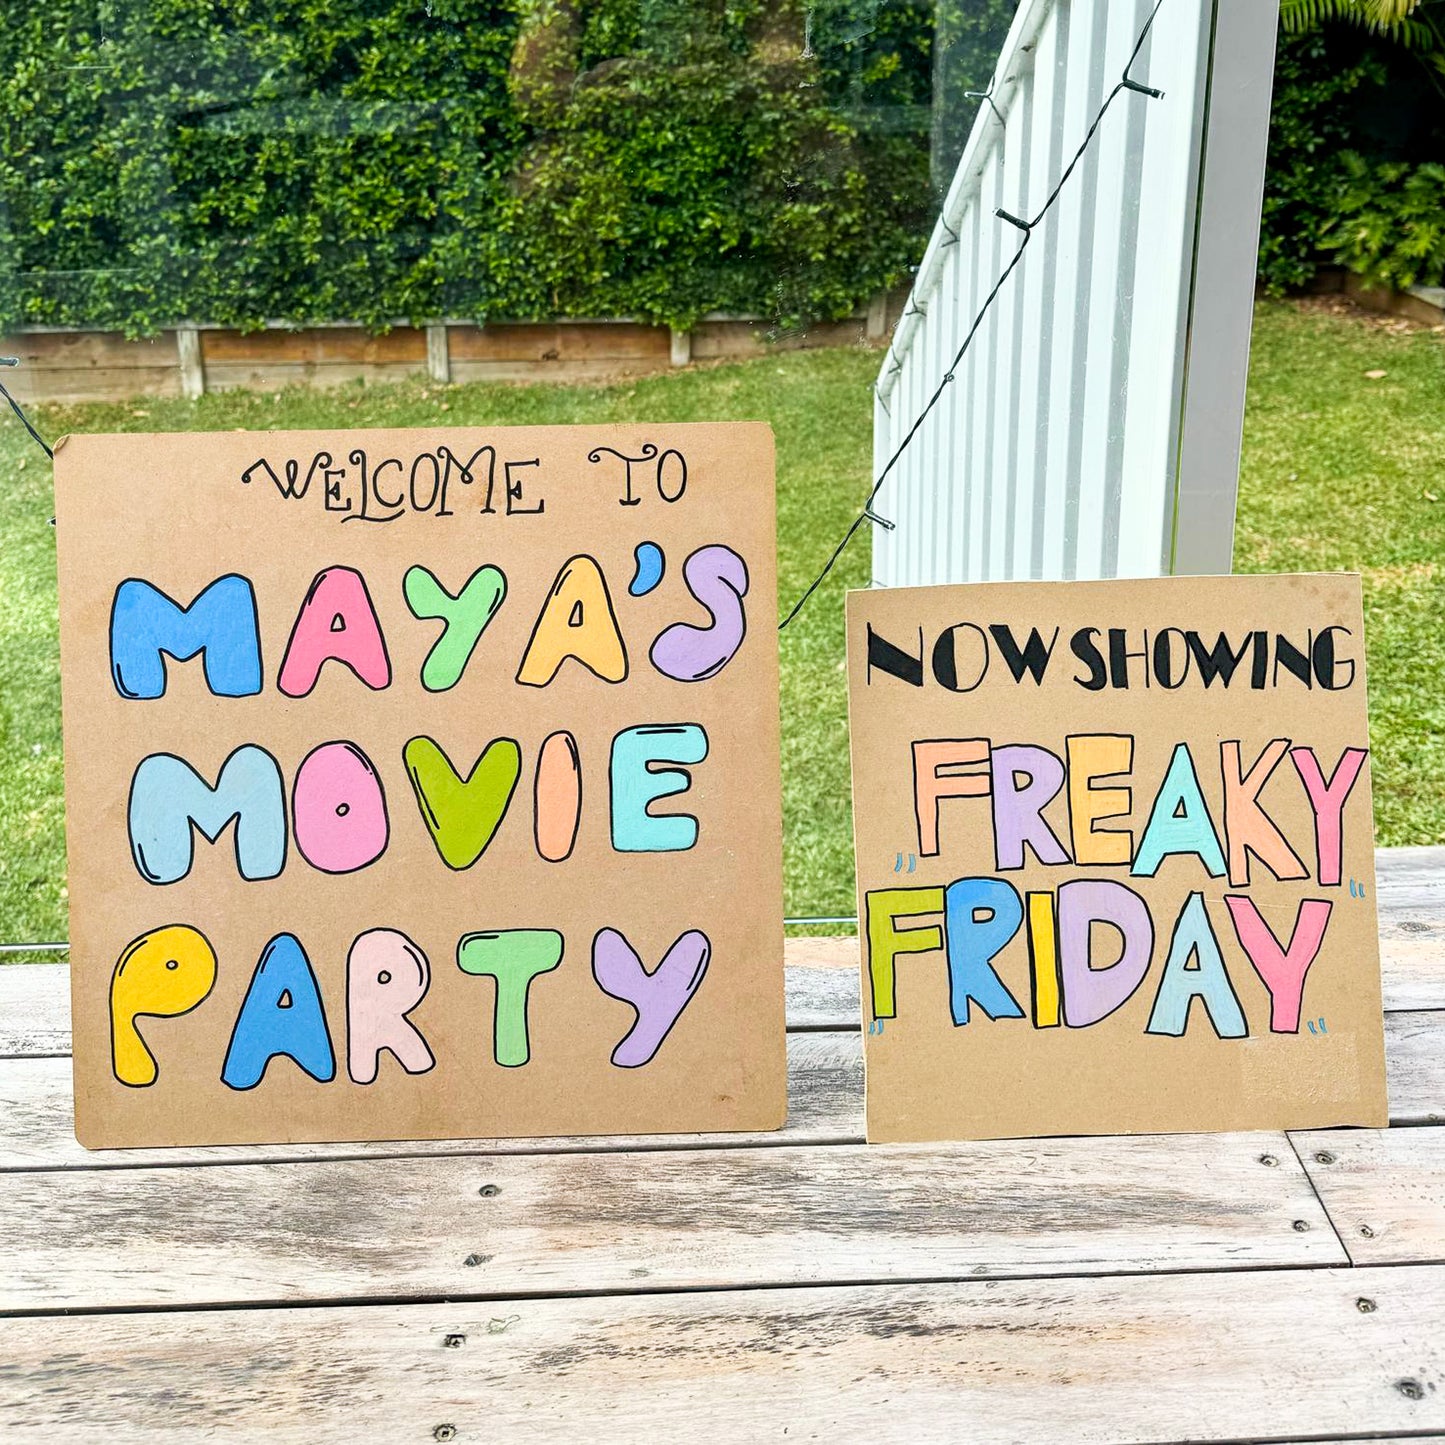 WELCOME TO
MAYA'S
MOVIE
PARTY
NOW SHOWING
FREAKY
FRIDAY